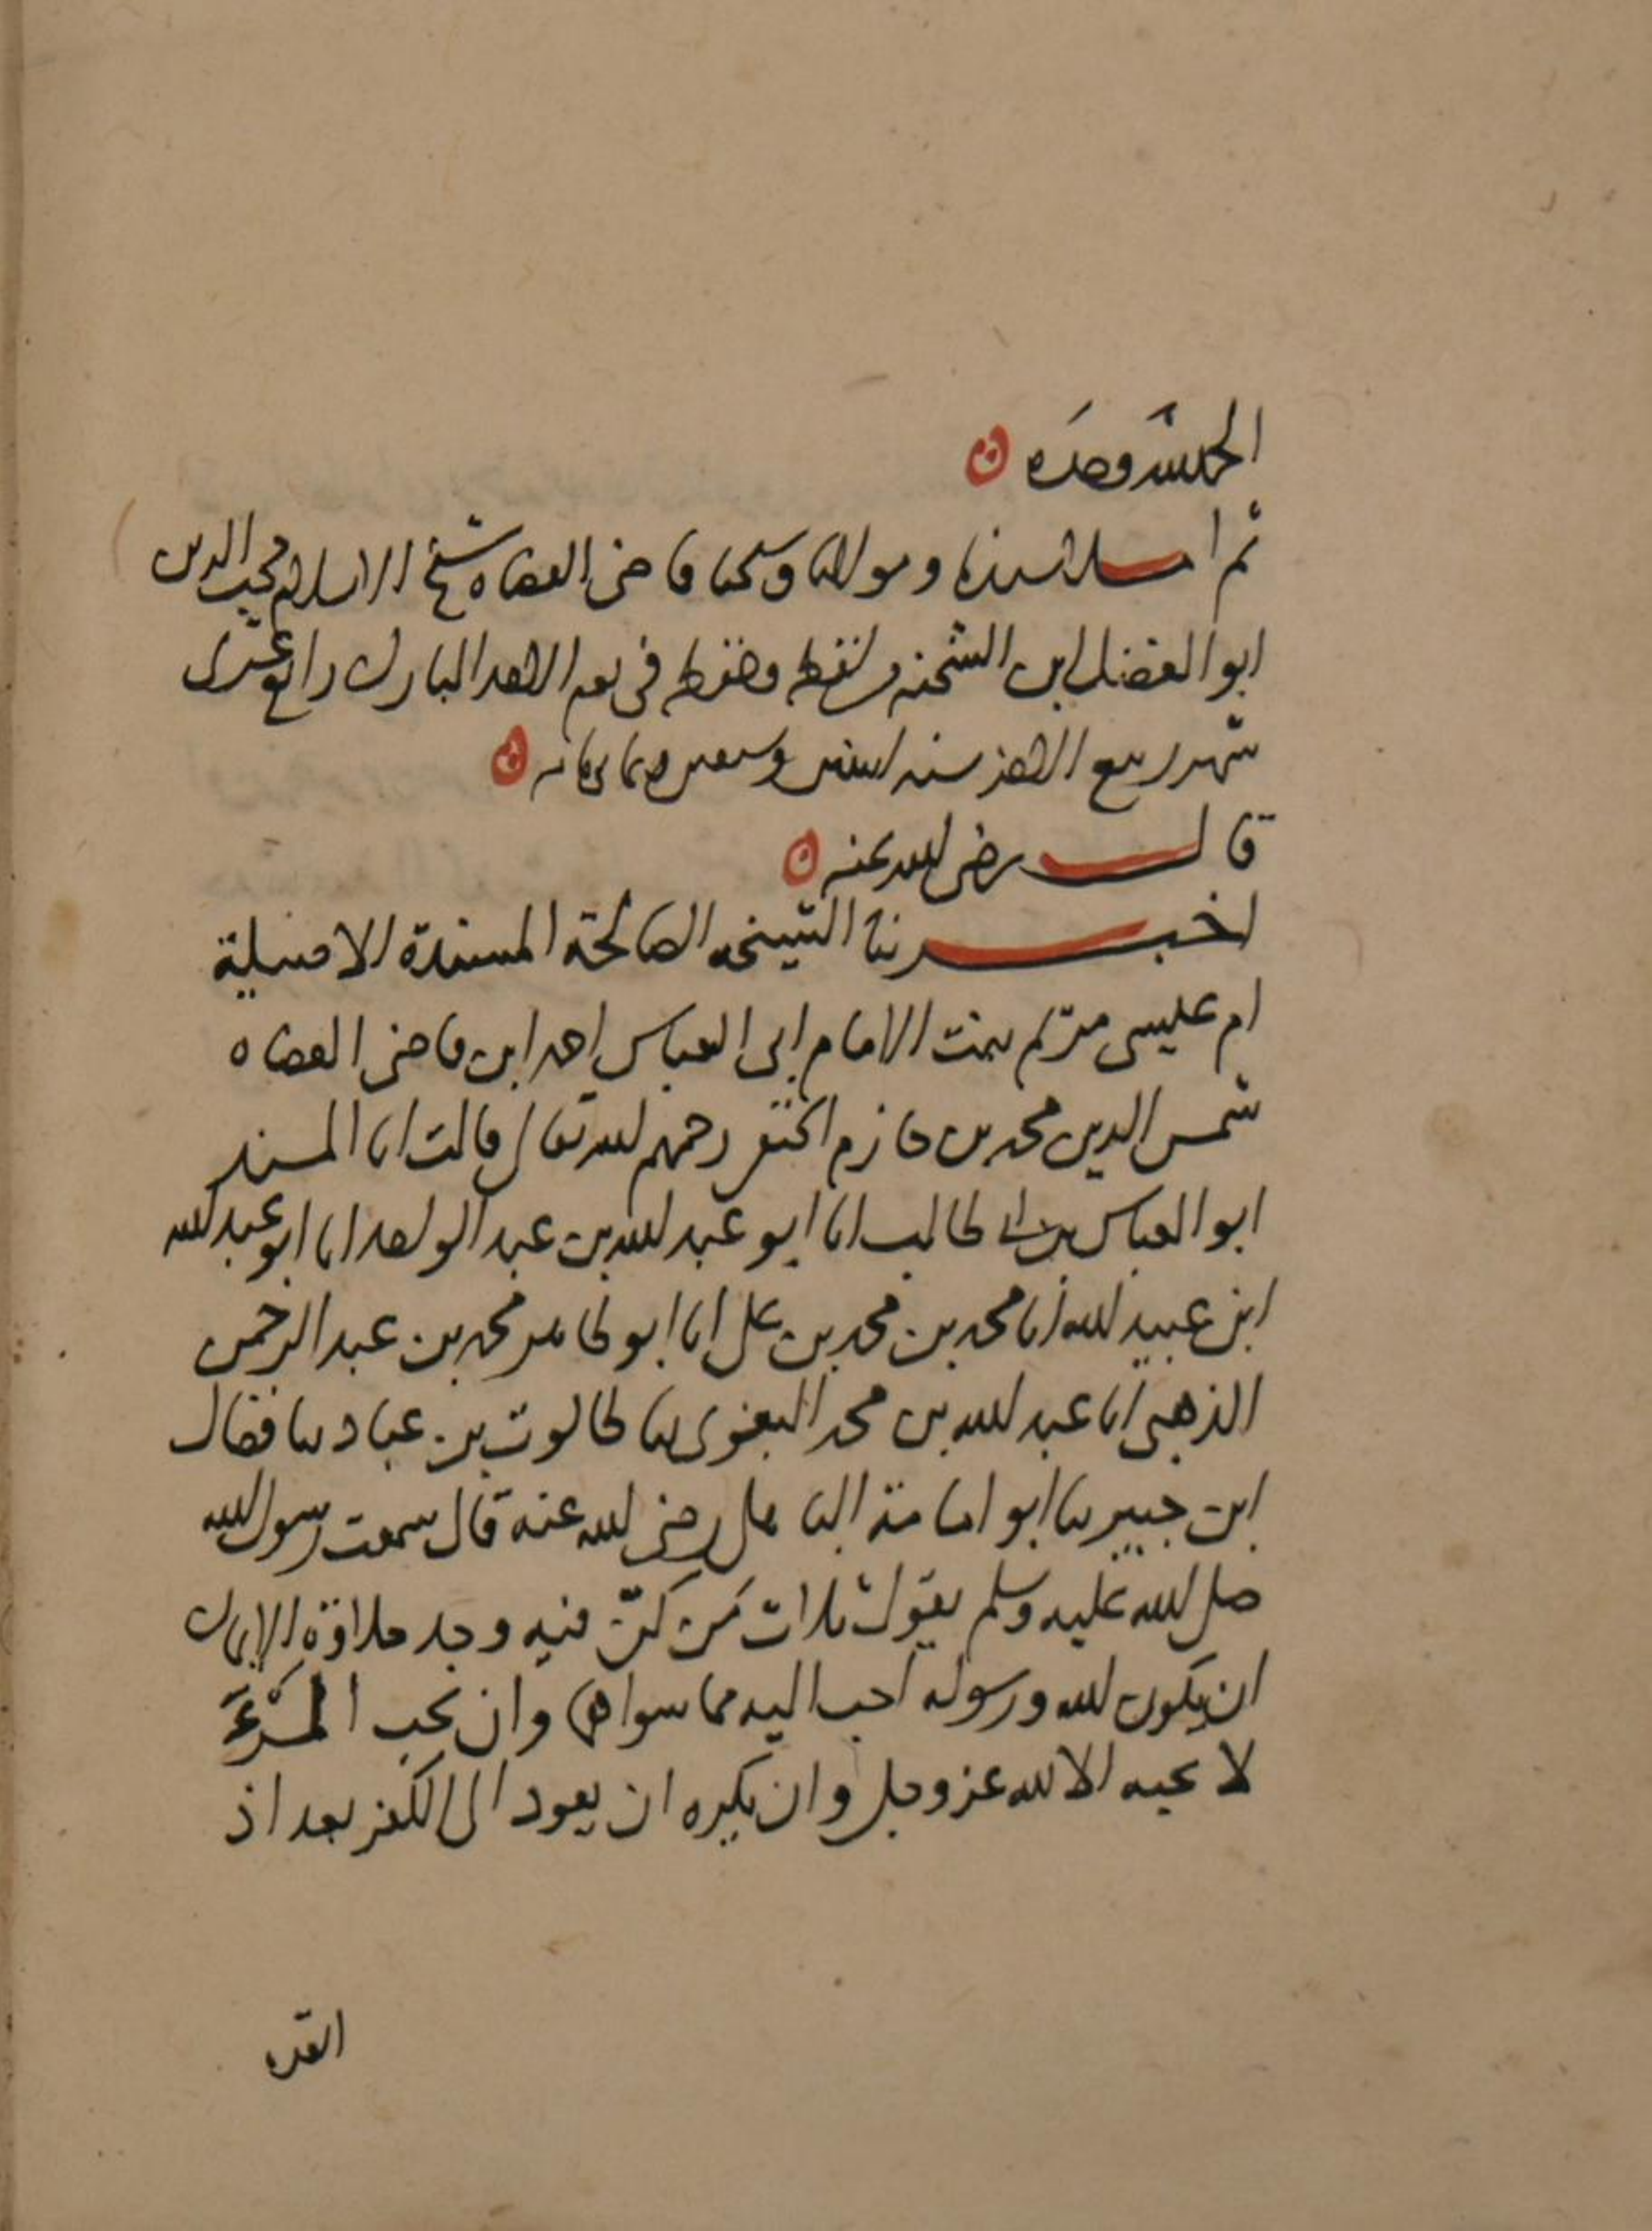 الحمد لله وحده
ثم املا سيدنا ومولانا وشيخنا قاضى القضاه شيخ الاسلام محب الدين
ابو الفضل ابن الشحنه من لفظه وحفظه فى يوم الاحد المبارك رابع عشرى
شهر ربيع الاخر سنه اثنتين وسبعين وثمانمائه
قال رضى الله عنه
اخبرتنا الشيخه الصالحة المسندة الاصيلة
ام عيسى مريم بنت الامام ابى العباس احمد ابن قاضى القضاه
شمس الدين محمد بن حازم الحنفى رحمهم الله تعالى قالت انا المسند
ابو العباس بن ابى طالب انا ابو عبد الله بن عبد الواحد انا ابو عبد الله
ابن عبيد الله انا محمد بن محمد بن على انا ابو طاهر محمد بن عبد الرحمن
الذهبى انا عبد الله بن محمد البغوى ثنا طالوت بن عباد ثنا فضال
ابن جبير ثنا ابو امامة الباهلى رضى الله عنه قال سمعت رسول الله
صلى الله عليه وسلم يقول ثلاث من كن فيه وجد حلاوة الايمان
ان يكون الله ورسوله احب اليه مما سواهما وان يحب المرء
لا يحبه الا لله عز وجل وان يكره ان يعود الى الكفر بعد اذ
انقذه